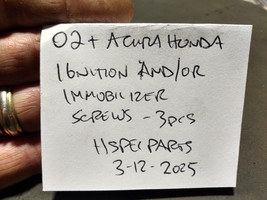 02+ ACURA HONDA
IGNITION AND/OR
IMMOBILIZER
SCREWS - 3PCS
HSPEC PARTS
3-12-2025